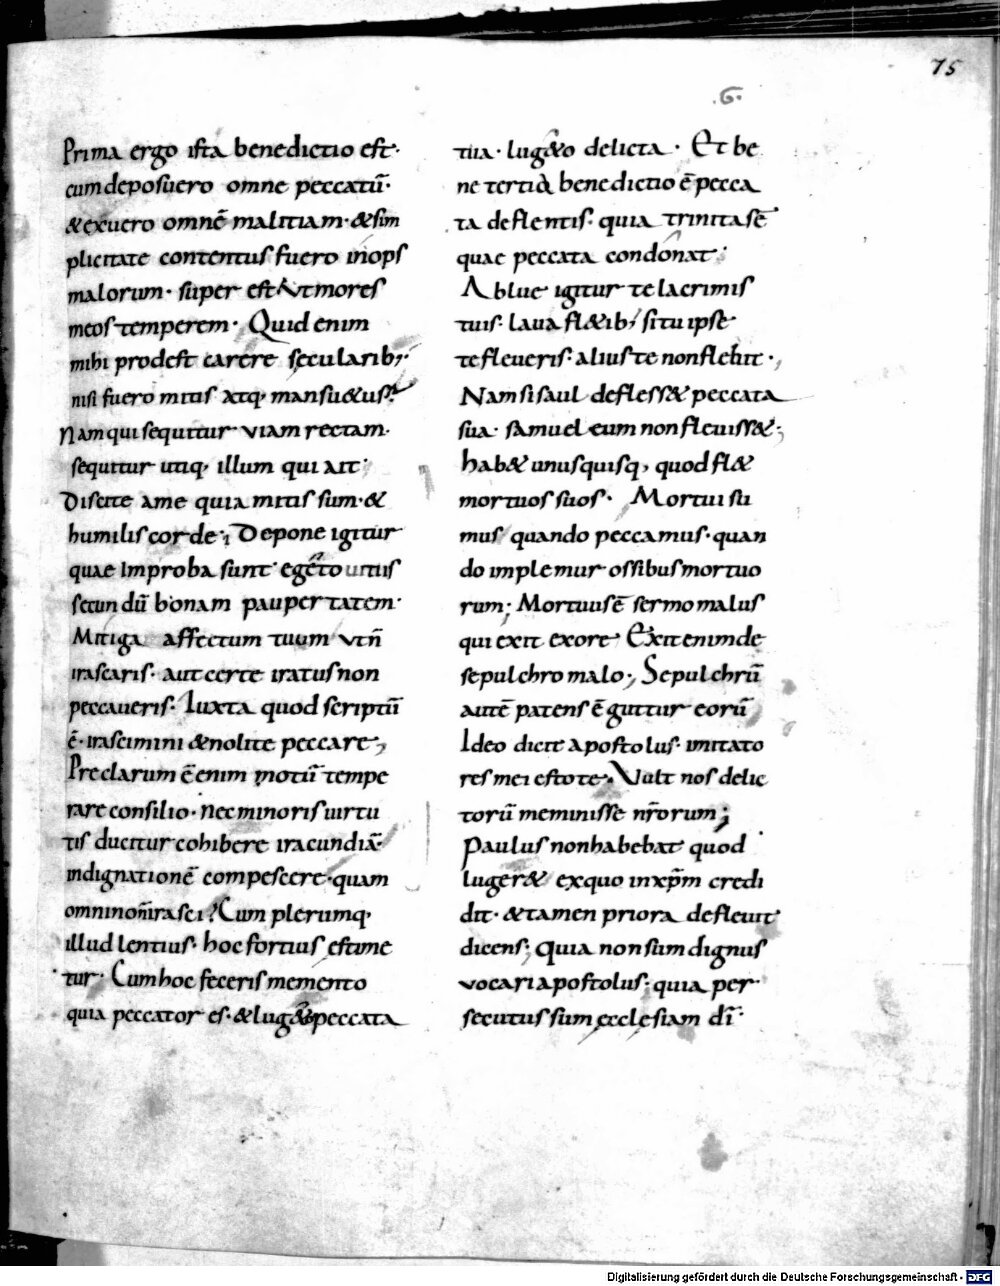 75
G.
Prima ergo ista benedictio est·
cum deposuero omne peccatū·
&exuero omnē malitiam·&sim
plicitate contentus fuero inops
malorum· super est Vt mores
meos temperem· Quid enim
mihi prodest carere secularib;
nisi fuero mitis atq; mansu&us?
Nam qui sequitur viam rectam·
sequitur utiq; illum qui ait·
Discite ame quia mitis sum·&
humilis corde; Depone igitur
quae improba sunt
secundū bonam paupertatem·
Mitiga affectum tuum vt ñ
irascaris· aut certe iratus non
peccaueris· Iuxta quod scriptū
ē· irascimini &nolite peccare;
Preclarum ē enim motū tempe
rare consilio· nec minoris uirtu
tis ducitur cohibere iracundiā·
indignationē compescere·quam
omnino irasci? Cum plerumq;
illud lentius· hoc fortius estime
tur· Cum hoc feceris memento
quia peccator es·&lug& peccata
tua· lug&o delicta· Et be
ne tertia benedictio ē pecca
ta deflentis· quia trinitas ē
quae peccata condonat·
Ablue igitur te lacrimis
tuis· laua fl&ib; si tu ipse
te fleueris· alius te non flebit·,
Nam si saul defless& peccata
sua· samuel eum non fleuiss&;
hab& unusquisq; quod fl&
mortuos suos· Mortui su
mus quando peccamus·quan
do implemur ossibus mortuo
rum; Mortuus ē sermo malus
qui exit exore· Exit enim de
sepulchro malo; Sepulchrū
autē patens ē guttur eorū
Ideo dicit apostolus· imitato
res mei estote· Vult nos delic
torū meminisse nr̄orum;
Paulus non habebat quod
luger& exquo in xp̄m credi
dit· &tamen priora defleuit
dicens; Quia non sum dignus
vocari apostolus· quia per
secutus sum ecclesiam dī·
Digitalisierung gefördert durch die Deutsche Forschungsgemeinschaft - DFG